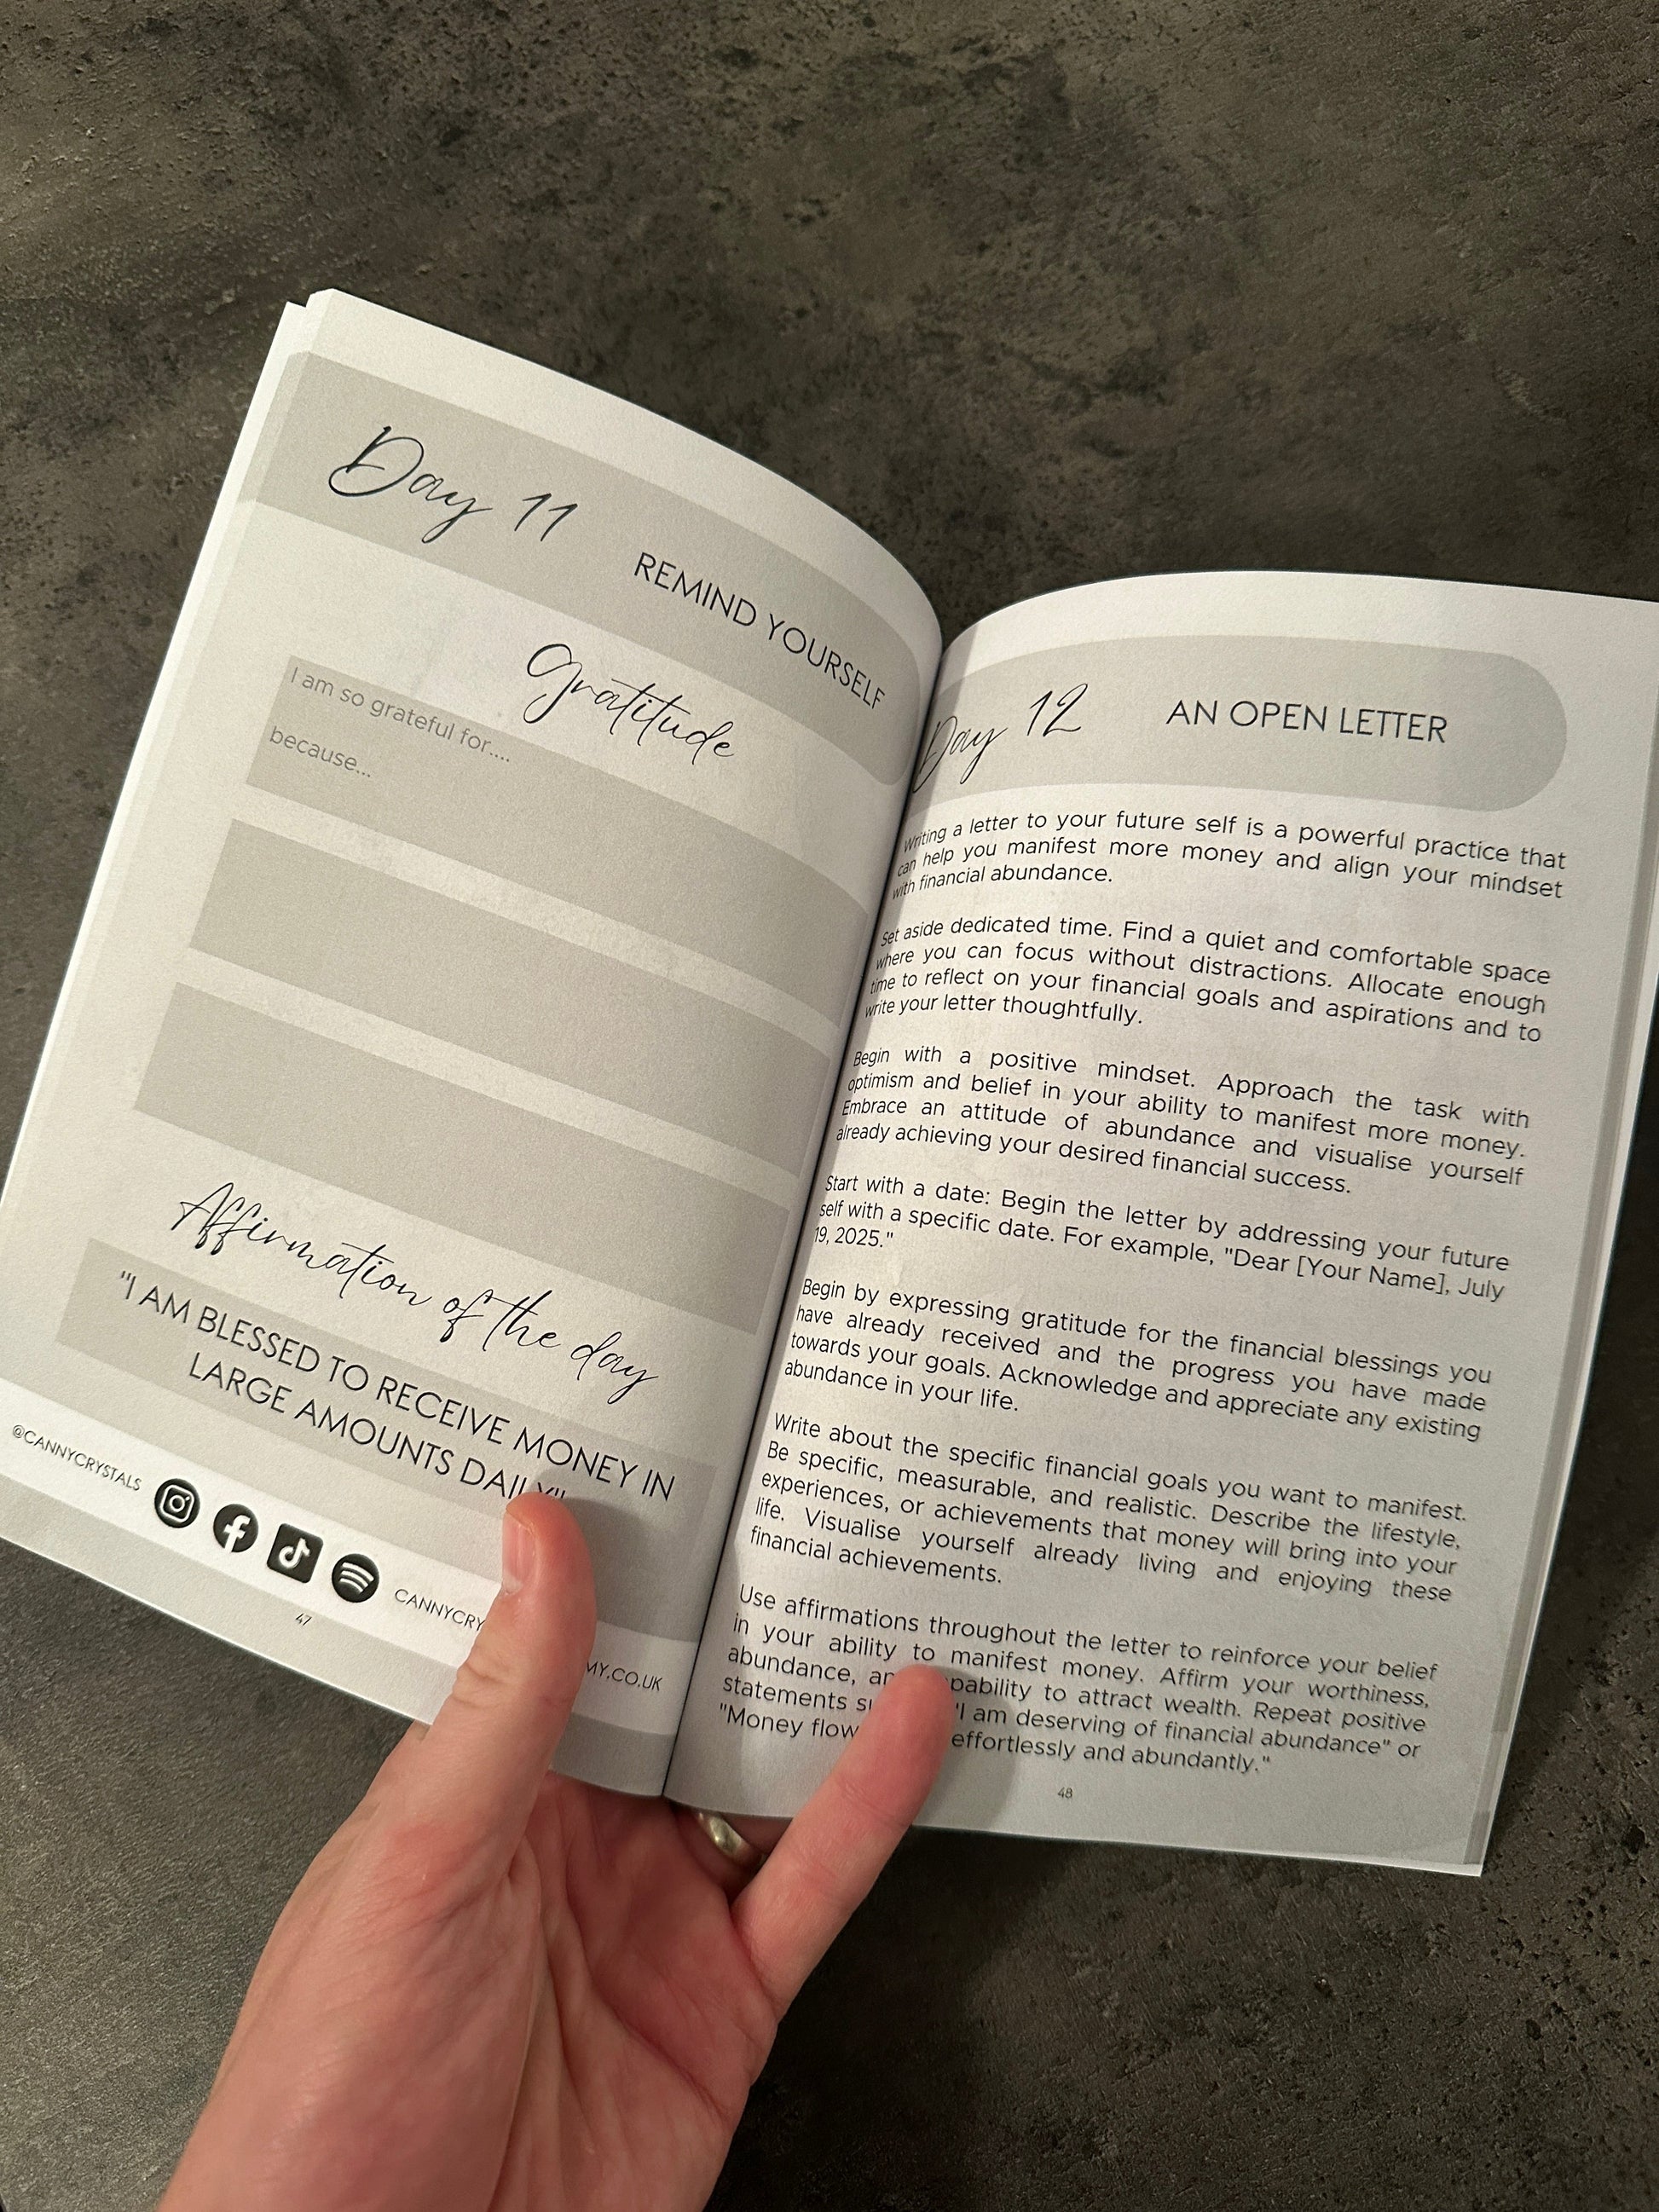 Day 11
REMIND YOURSELF
Gratitude
I am so grateful for....
because...
Affirmation of the day
"I AM BLESSED TO RECEIVE MONEY IN
LARGE AMOUNTS DAILY"
@CANNYCRYSTALS
47
Day 12
AN OPEN LETTER
Writing a letter to your future self is a powerful practice that
can help you manifest more money and align your mindset
with financial abundance.
Set aside dedicated time. Find a quiet and comfortable space
where you can focus without distractions. Allocate enough
time to reflect on your financial goals and aspirations and to
write your letter thoughtfully.
Begin with a positive mindset. Approach the task with
optimism and belief in your ability to manifest more money.
Embrace an attitude of abundance and visualise yourself
already achieving your desired financial success.
Start with a date: Begin the letter by addressing your future
self with a specific date. For example, "Dear [Your Name], July
19, 2025."
Begin by expressing gratitude for the financial blessings you
have already received and the progress you have made
towards your goals. Acknowledge and appreciate any existing
abundance in your life.
Write about the specific financial goals you want to manifest.
Be specific, measurable, and realistic. Describe the lifestyle,
experiences, or achievements that money will bring into your
life. Visualise yourself already living and enjoying these
financial achievements.
Use affirmations throughout the letter to reinforce your belief
in your ability to manifest money. Affirm your worthiness,
abundance, to attract wealth. Repeat positive
statements "I am deserving of financial abundance" or
"Money effortlessly and abundantly."
48